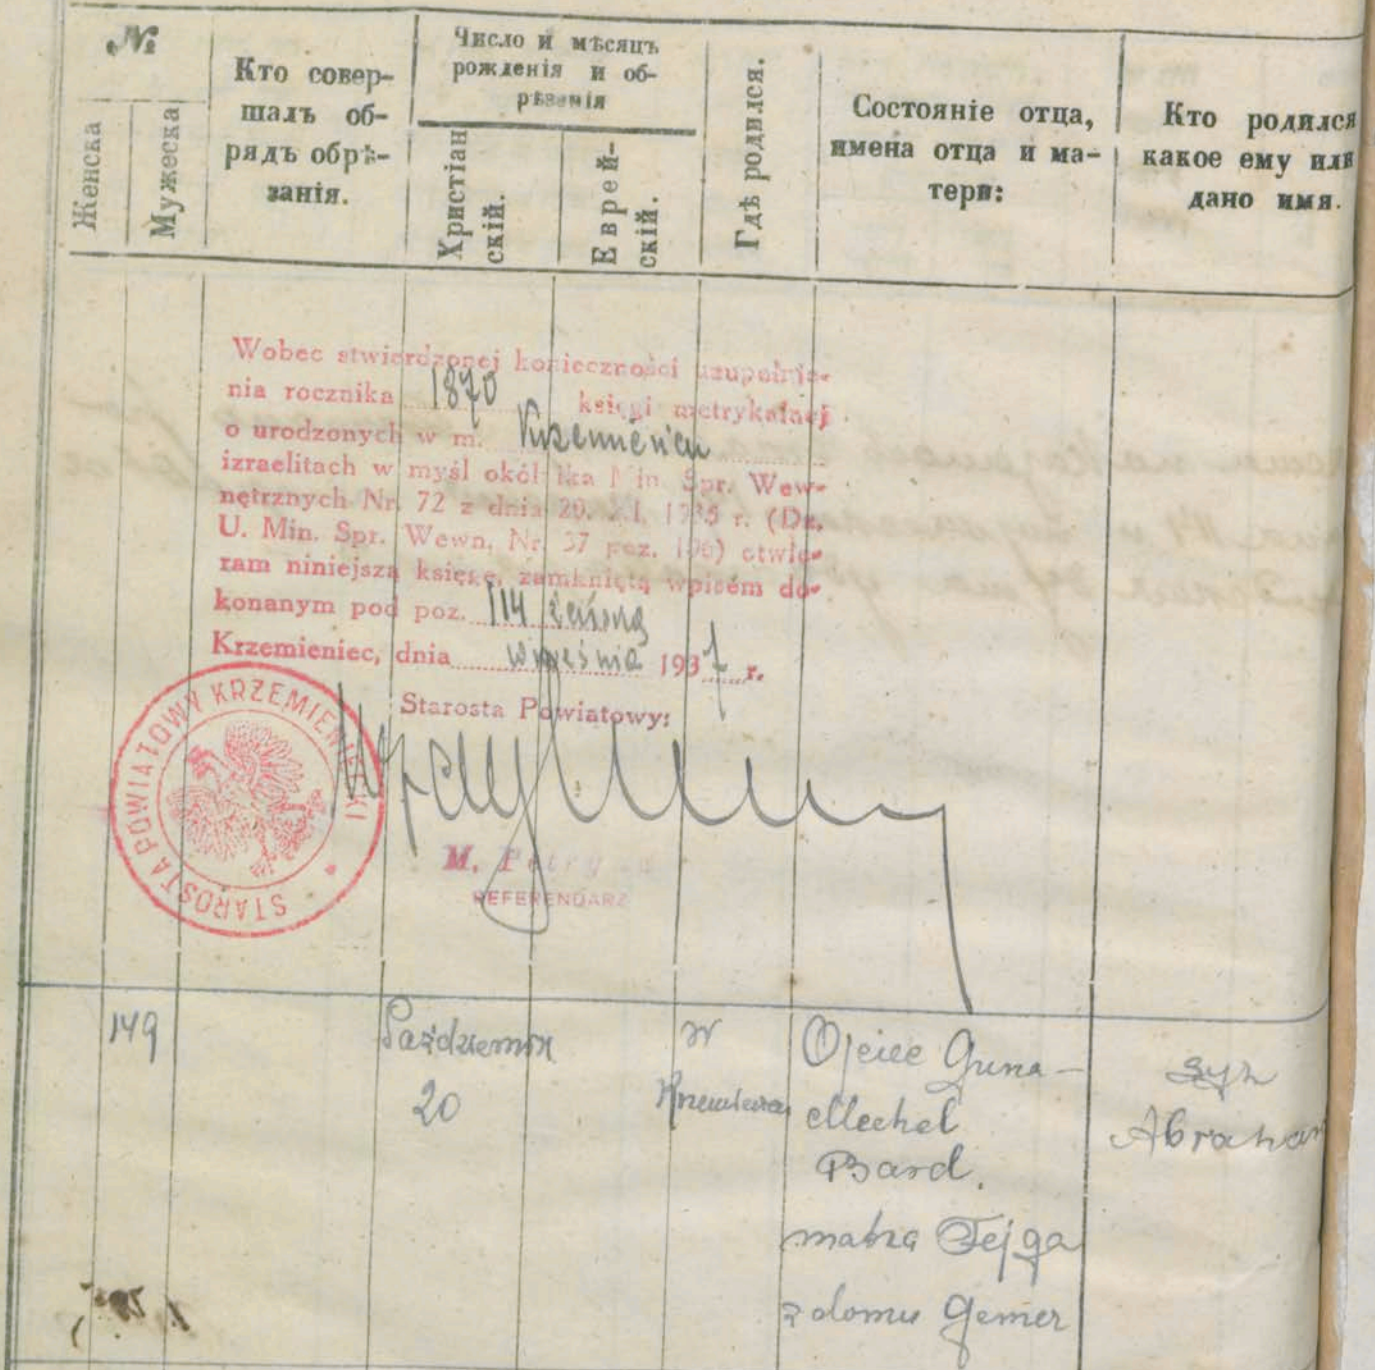 №
Женска
Мужеска
Кто совер-
шалъ об-
рядъ обрѣ-
занія.
Число и мѣсяцъ
рожденія и об-
рѣзанія
Христіан
скій.
Еврей-
скій.
Гдѣ родился.
Состояніе отца,
имена отца и ма-
тери:
Кто родился
какое ему или
дано имя.
Wobec stwierdzonej konieczności uzupełnie-
nia rocznika 1870 księgi metrykalnej
o urodzonych w m. Krzemieńcu
izraelitach w myśl okólnika Min. Spr. Wew-
nętrznych Nr. 72 z dnia 29. XI. 1935 r. (Dz.
U. Min. Spr. Wewn. Nr. 37 poz. 196) otwie-
ram niniejszą księgę, zamkniętą wpisem do-
konanym pod poz. 114
Krzemieniec, dnia września 1937 r.
Starosta Powiatowy:
STAROSTA POWIATOWY KRZEMIENIECKI
M.
REFERENDARZ
149
Październik
20
w
Krzemieńcu
Ojciec
Mechel
Bard.
matka Fejga
z domu Gemer
syn
Abraham